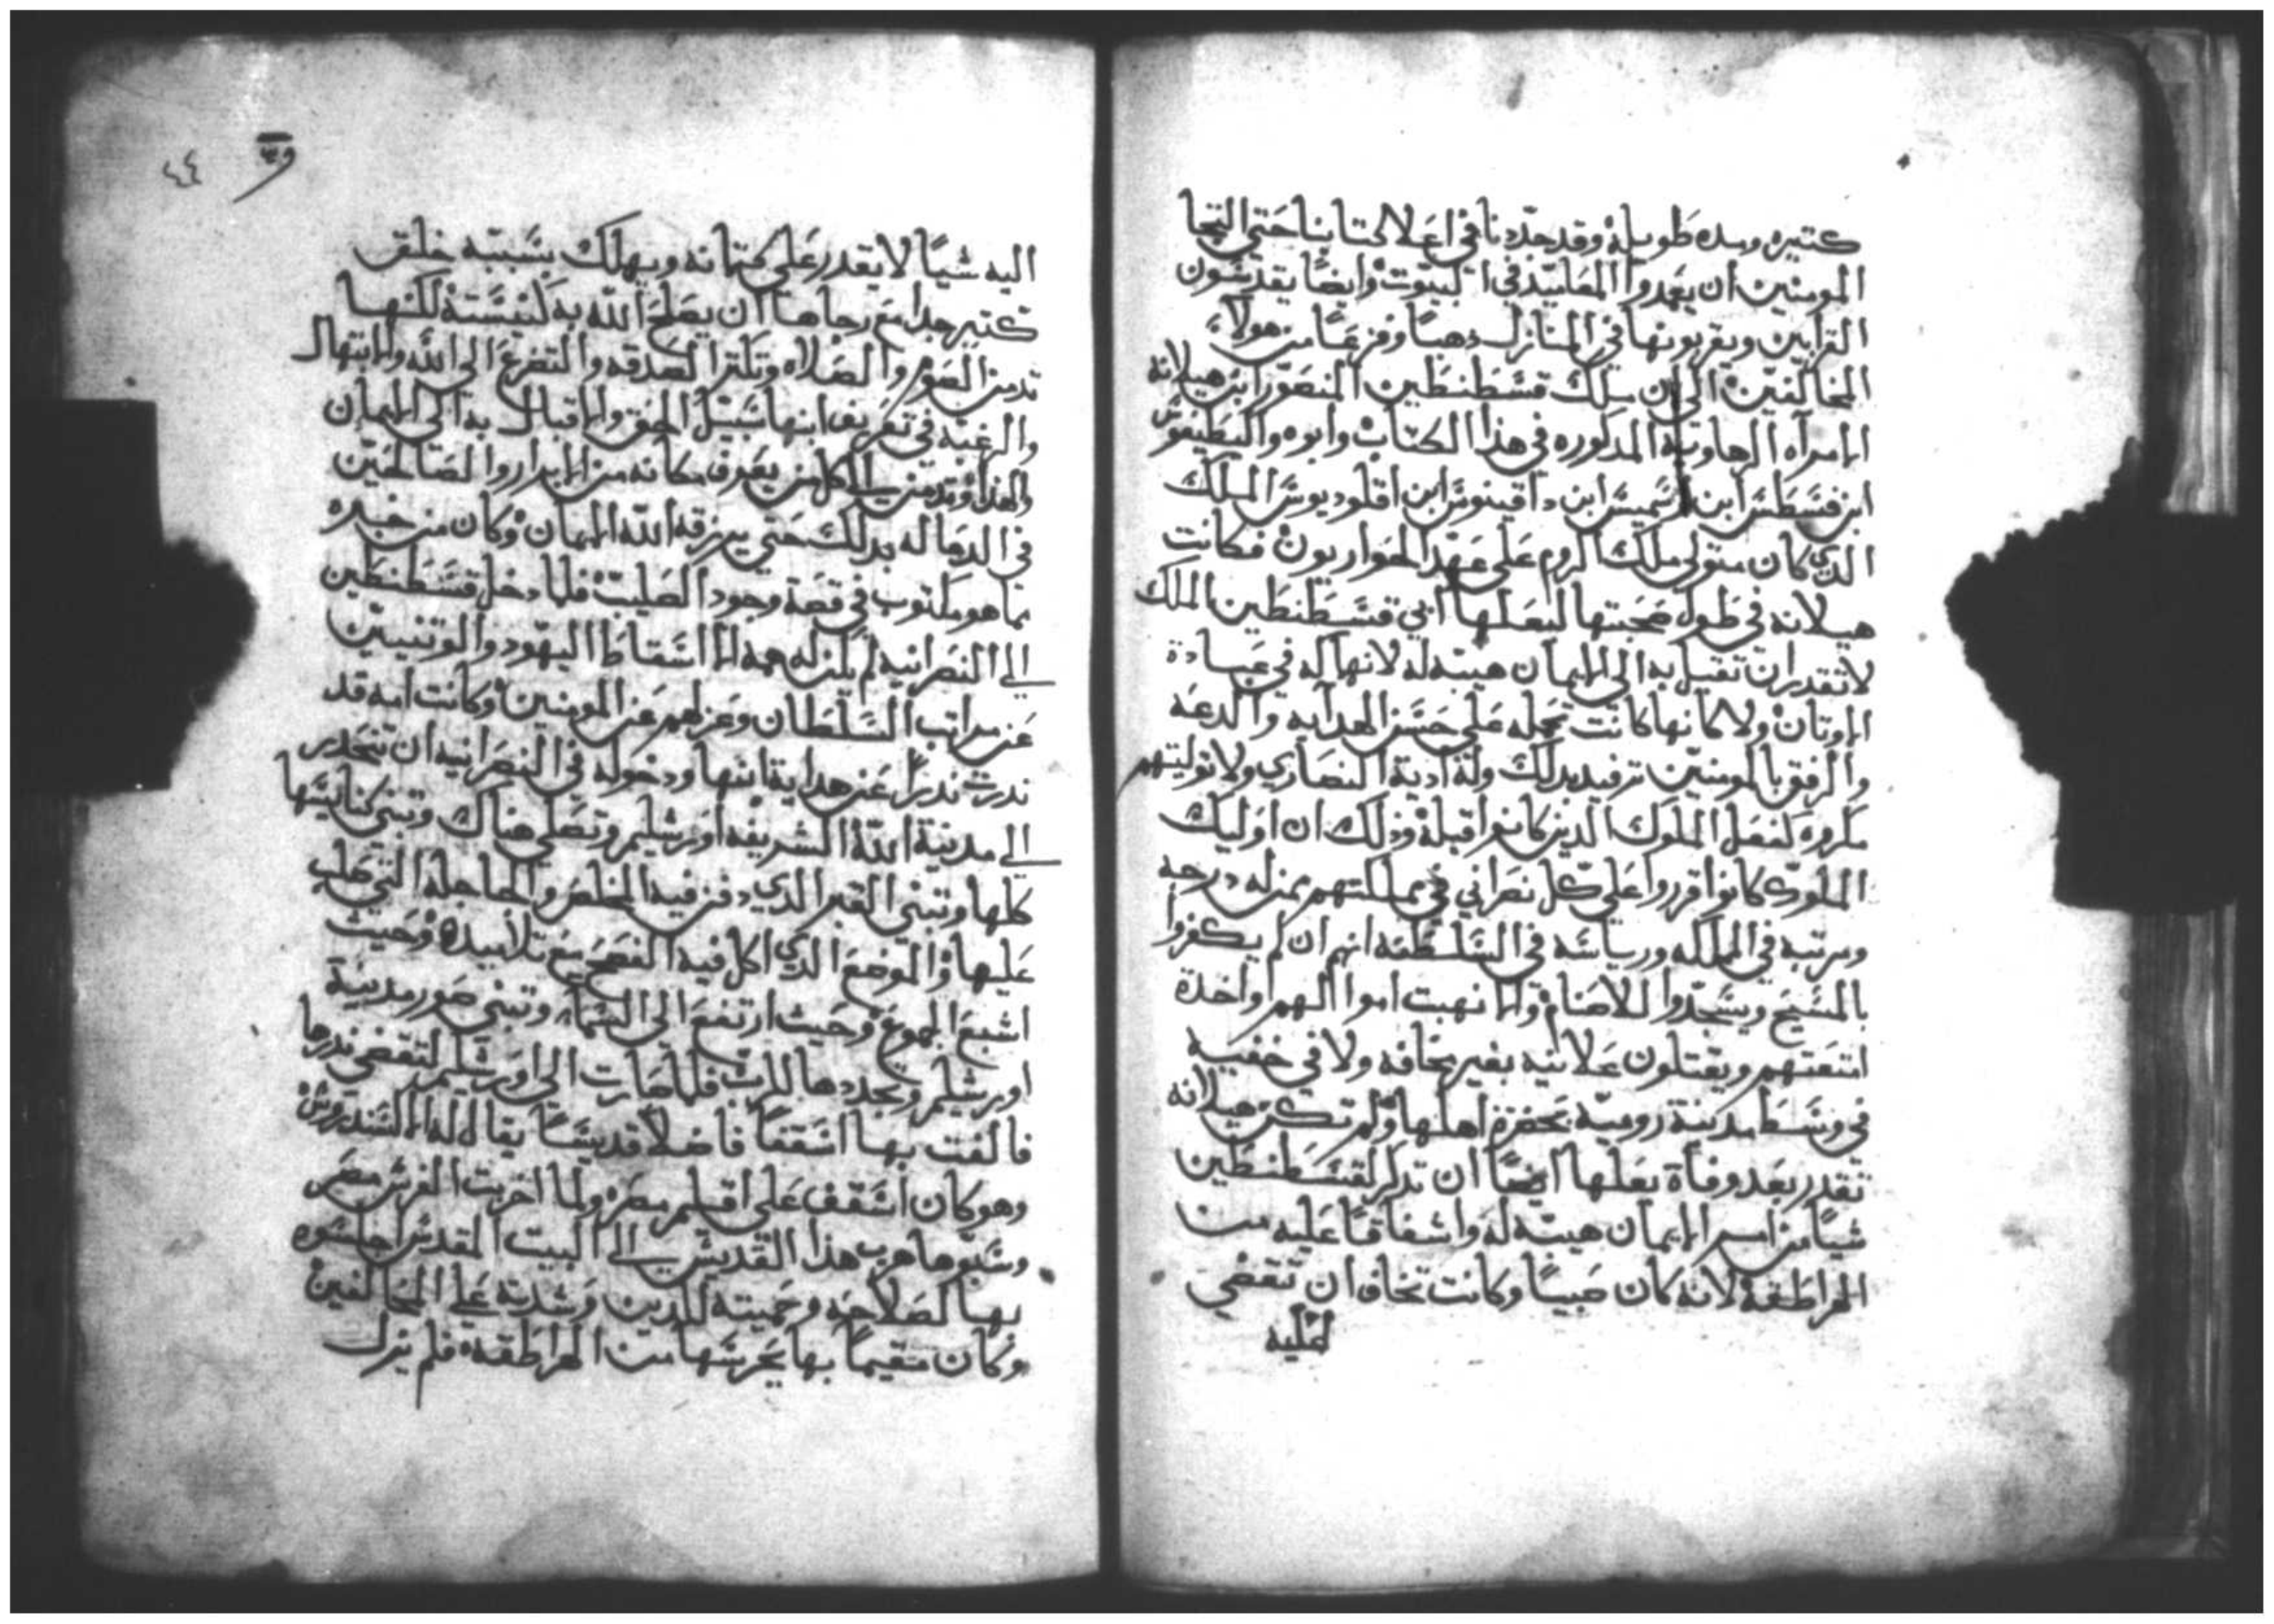 كتيره ومده طويله وقد جددنا في اعلا كتابنا حتي التجا
المومنين ان يعمدوا المعاميد في البيوت وايضا يقدسون
القرابين ويقربونها في المنازل وفزعا من هولاء
المخالفين الي ان ملك قسطنطين المنصور ابن هيلانة
الامراه الرهاويه المذكوره في هذا الكتاب وابوه
ابن ابن ابن اقلوديوس الملك
الدي كان متولي ملك الروم علي عهد الحواريون فكانت
هيلانه في طول صحبتها لبعلها ابي قسطنطين الملك
لا تقدر ان تقبل به الي الايمان هيبه له لانها له في عبادة
الاوتان ولاكانها كانت تحمله علي حسن الهدايه والدعه
والرفق بالمومنين ادية النصاري ولا توليتهم
مكروه كفعل الملوك الدين كانوا قبله وذلك ان اوليك
الملوك كانوا قرروا علي كل نصراني في مملكتهم بمنزله درجه
ومرتبه في المملكه ورياسه في السلطنه انهم ان لم يكفروا
بالمسيح ويسجدوا للاصنام والا نهبت اموالهم واخدة
امتعتهم ويقتلون علانيه بغير مخافه ولا في خفيه
في وسط مدينة روميه بحضرة اهلها ولم تكن هيلانه
تقدر بعد وفاة بعلها ايضا ان تدكر لقسطنطين
شيا من اسم الايمان هيبه له واشفاقا عليه من
الهراطقه لانه كان صبيا وكانت تخاف ان تفضي
اليه
٤٤
اليه شيا لا يقدر علي كتمانه ويهلك بسببه خلق
كتير جدا مع رجاها ان يصلح الله به كنيسته لكنها
تدمن الصوم والصلاه وتكتر الصدقه والتضرع الي الله والابتهال
والرغبه في تعريف ابنها سبيل الحق والاقبال به الي الايمان
كل من يعرف مكانه من الابرار والصالحين
في الدعا له بدلك حتي يرزقه الله الايمان وكان من خبره
بما هو مكتوب في قصة وجود الصليب فلما دخل قسطنطين
الي النصرانيه لم يكن له همه الا اسقاط اليهود والوتنيين
عن مراتب السلطان وعزلهم عن المومنين وكانت امه قد
ندرت ندرا عن هداية ابنها ودخوله في النصرانيه ان تنحدر
الي مدينة الله الشريفه اورشليم وتصلي هناك وتبني كنايسها
كلها وتبني القبر الدي دفن فيه المخلص والجاجلة التي صلب
عليها والموضع الدي اكل فيه الفصح مع تلاميده وحيث
اشبع الجموع وحيث ارتفع الي السماء وتبني صور مدينة
اورشليم وتجددها للرب فلما صارت الي اورشليم لتقضي ندرها
فالفت بها اسقفا فاضلا قديسا يقال له الكسندروس
وهو كان اسقف علي اقليم مصر ولما اخربت الفرس مصر
وسبوها هرب هذا القديس الي البيت المقدس اجلسوه
بها لصلاحه وحميته للدين وشدته علي المخالفين
وكان مقيما بها يحرسها من الهراطقه فلم يزل